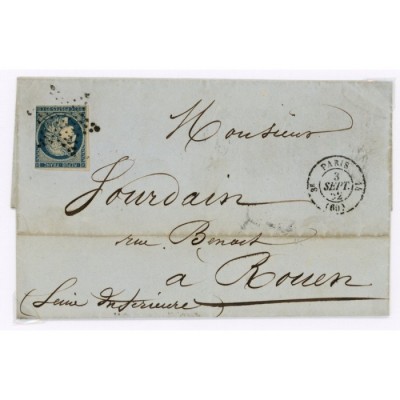 Monsieur
Jourdain
rue Benoit
à Rouen
(Seine Inferieure)
PARIS
3
SEPT.
52
(60)